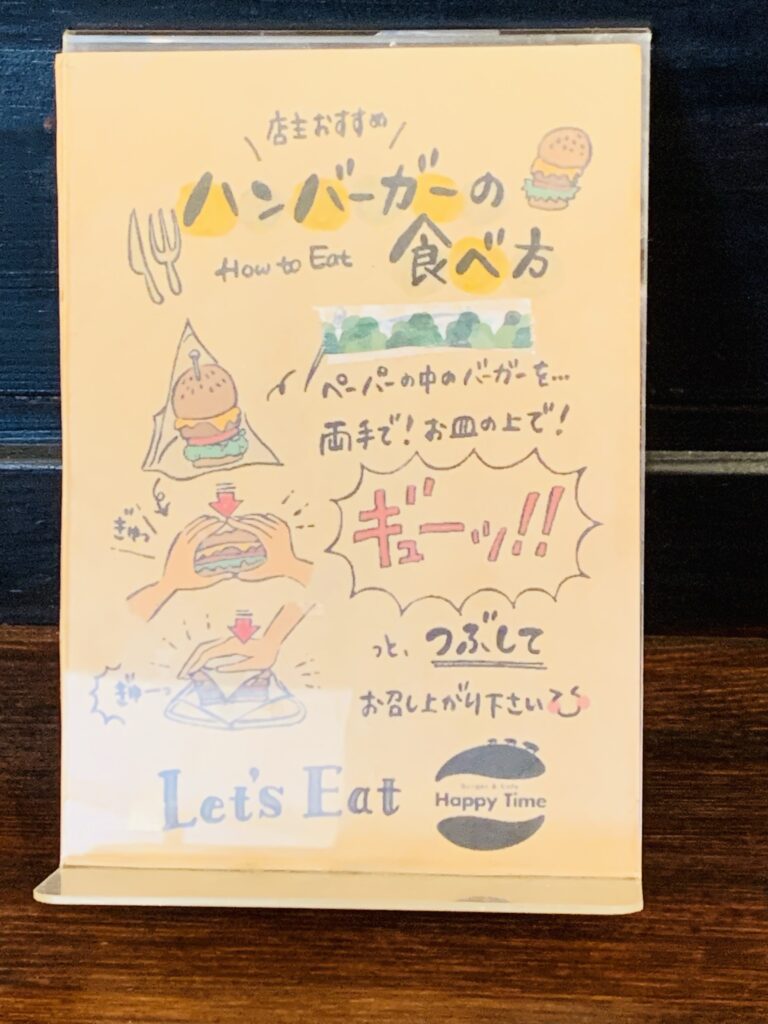 店主おすすめ
ハンバーガーの
How to Eat 食べ方
ペーパーの中のバーガーを…
両手で!お皿の上で!
ぎゅっ
ギューッ!!
っと、つぶして
ぎゅーっ
お召し上がり下さい
Let's Eat
Burger & Cafe
Happy Time